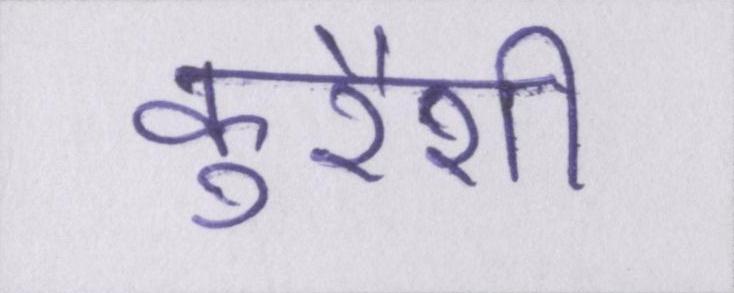 कुरैशी